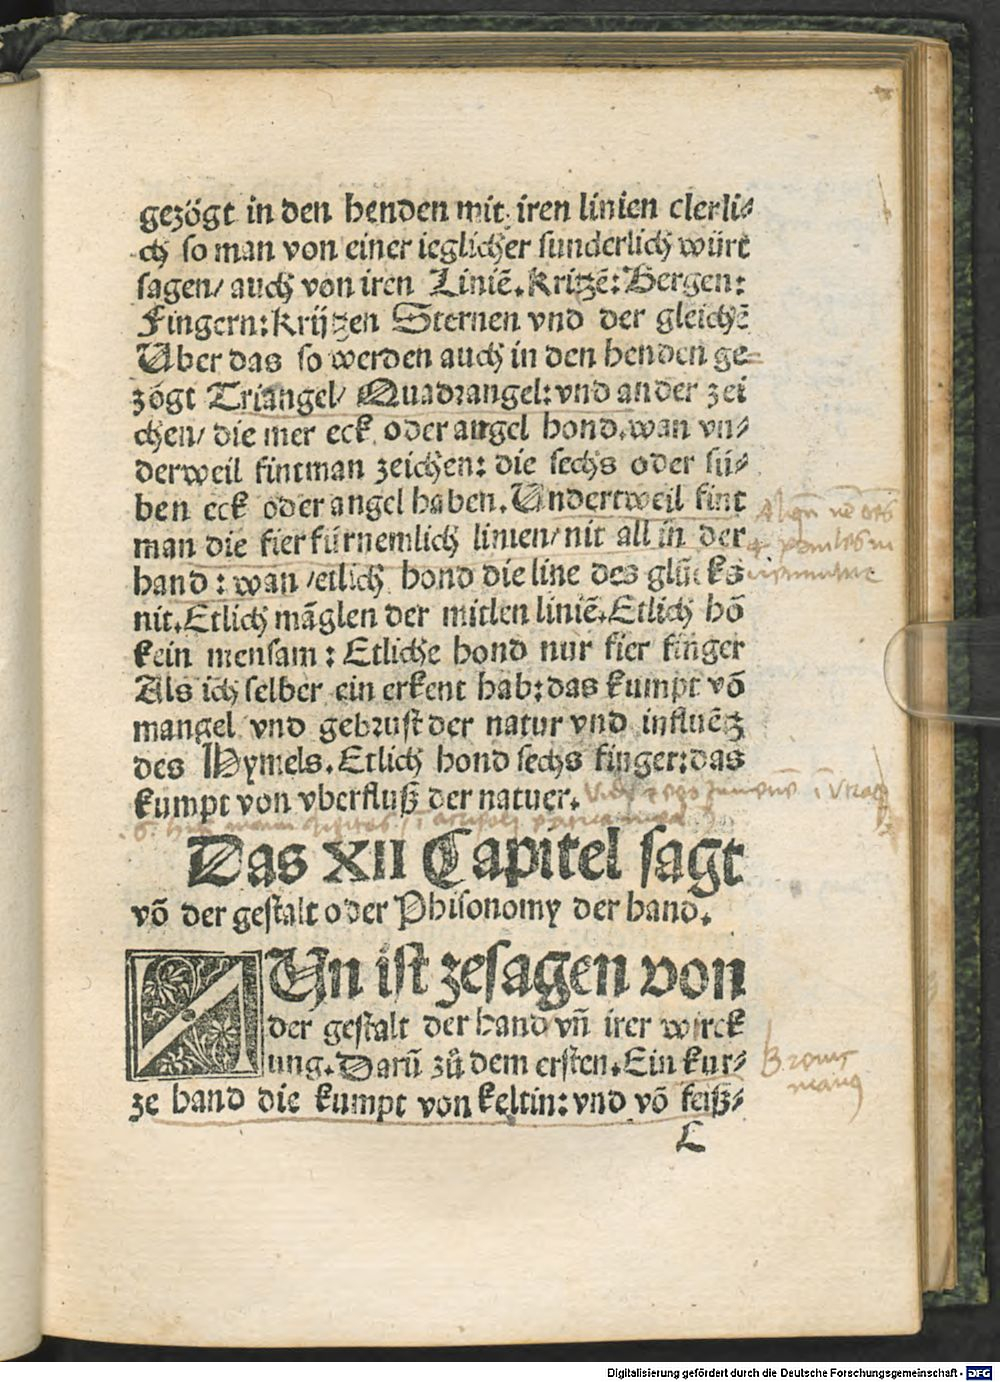 gezögt in den henden mit iren linien clerli⸗
ch so man von einer ieglicher sunderlich würt
sagen/ auch von iren Liniē. kritzē: Bergen:
Fingern: krijtzen Sternen vnd der gleichē
Uber das so werden auch in den henden ge⸗
zögt Triangel/ Quadrangel: vnd ander zei
chen/ die mer eck oder angel hond. wan vn⸗
derweil fintman zeichen: die sechs oder sü⸗
ben eck oder angel haben. Undertweil fint
man die fier fürnemlich linien/ nit all in der
hand: wan /etlich hond die line des glücks
nit. Etlich māglen der mitlen liniē. Etlich hō
kein mensam: Etliche hond nur fier finger
Als ich selber ein erkent hab: das kumpt vō
mangel vnd gebrust der natur vnd influētz
des Hymels. Etlich hond sechs finger: das
kumpt von vberfluß der natuer.
Das XII Capitel sagt
vō der gestalt oder Phisonomy der hand.
NUn ist zesagen von
der gestalt der hand vn̄ irer wirck
ung. Darū zů dem ersten. Ein kur⸗
ze hand die kumpt von keltin: vnd vō feiß⸗
L
Brevis
manus
Digitalisierung gefördert durch die Deutsche Forschungsgemeinschaft - DFG